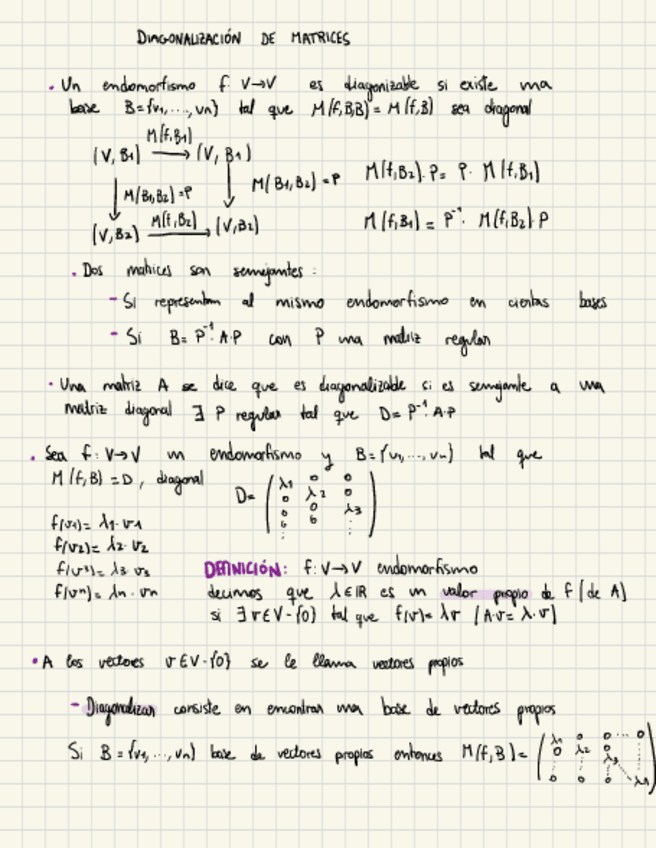 DIAGONALIZACIÓN DE MATRICES
• Un endomorfismo f: V→V es diagonizable si existe una
base B={v1,...,vn} tal que M(f,B,B) = M(f,B) sea diagonal
M(f,B1)
(V,B1) → (V,B1)
M(f,B2).P = P. M(f,B1)
M(B1,B2)=P
M(B1,B2)=P
M(f,B1) = P⁻¹. M(f,B2).P
M(f,B2)
(V,B2) → (V,B2)
• Dos matrices son semejantes:
- Si representan al mismo endomorfismo en ciertas bases
- Si B= P⁻¹.A.P con P una matriz regular
• Una matriz A se dice que es diagonalizable si es semejante a una
matriz diagonal ∃ P regular tal que D= P⁻¹.A.P
• Sea f: V→V un endomorfismo y B={v1,...,vn} tal que
M(f,B)=D, diagonal
D= (λ1 0 0
0 λ2 0
0 0 λ3
0 0 ⋮
⋮)
f(v1)= λ1.v1
f(v2)= λ2.v2
f(v3)= λ3.v3
f(vn)= λn.vn
DEFINICIÓN: f: V→V endomorfismo
decimos que λ∈IR es un valor propio de f (de A)
si ∃v∈V-{0} tal que f(v)=λv (A.v=λ.v)
• A los vectores v∈V-{0} se le llama vectores propios
- Diagonalizar consiste en encontrar una base de vectores propios
Si B={v1,...,vn} base de vectores propios entonces M(f,B)= (λ1 0 0 ... 0
0 λ2 0
⋮ ⋮ λ3 ⋮
0 0 0 λn)